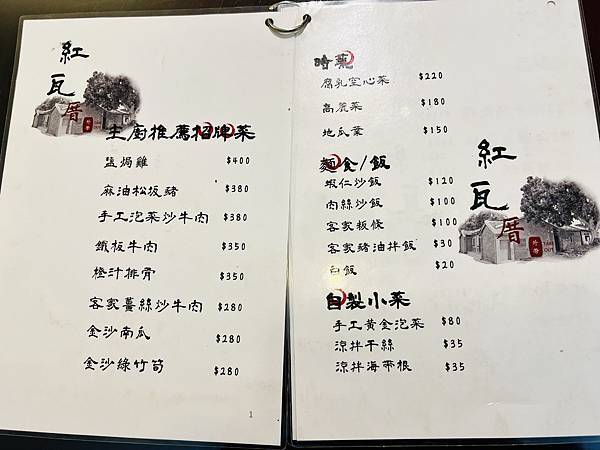 紅瓦厝
主廚推薦招牌菜
鹽焗雞 $400
麻油松坂豬 $380
手工泡菜炒牛肉 $380
鐵板牛肉 $350
橙汁排骨 $350
客家薑絲炒牛肉 $280
金沙南瓜 $280
金沙綠竹筍 $280
1
時蔬
腐乳空心菜 $220
高麗菜 $180
地瓜葉 $150
麵食/飯
蝦仁炒飯 $120
肉絲炒飯 $100
客家板條 $100
客家豬油拌飯 $30
白飯 $20
自製小菜
手工黃金泡菜 $80
涼拌干絲 $35
涼拌海帶根 $35
紅瓦厝
外帶